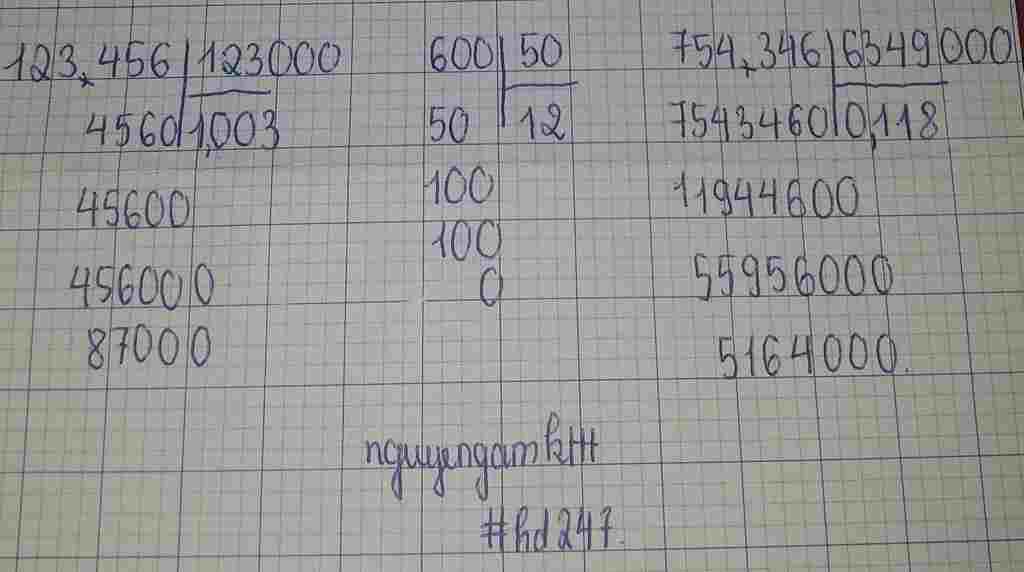 123,456 123000
4560 1,003
45600
456000
87000
600 50
50 12
100
100
0
754,346 6349000
7543460 0,118
11944600
55956000
5164000.
nguyengamkHH
#hd247.